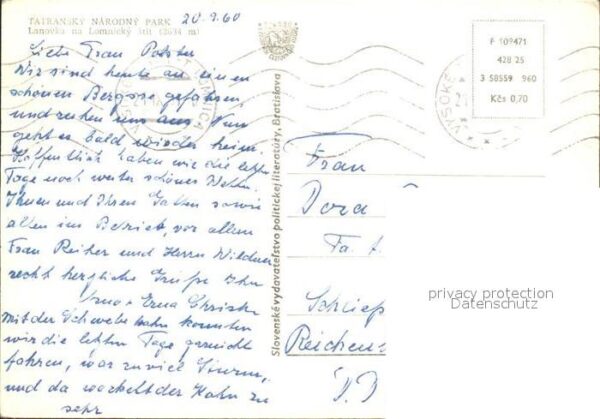 TATRANSKÝ NÁRODNÝ PARK
Lanovka na Lomnický štít (2634 m)
20.9.60
Liebe Frau
Wir sind heute an einen
schönen Bergsee gefahren,
und ruhen uns aus. Nun
geht es bald wieder heim.
Hoffentlich haben wir die letzten
Tage noch weiter schönes Wetter.
Ihnen und Ihren Gatten sowie
allen im Betrieb, vor allem
Frau Reiher und Herrn Wildner
recht herzliche Grüße Ihr
Erna
mit der Schwebebahn konnten
wir die letzten Tage garnicht
fahren, war zu viel Sturm,
und da wackelt der Kahn zu
sehr
Slovenské vydavateľstvo politickej literatúry, Bratislava
VYSOKÉ
P 109471
428 25
3 58559 960
Kčs 0,70
Frau
Dora
Fa.
Schließ
Reichen
privacy protection
Datenschutz